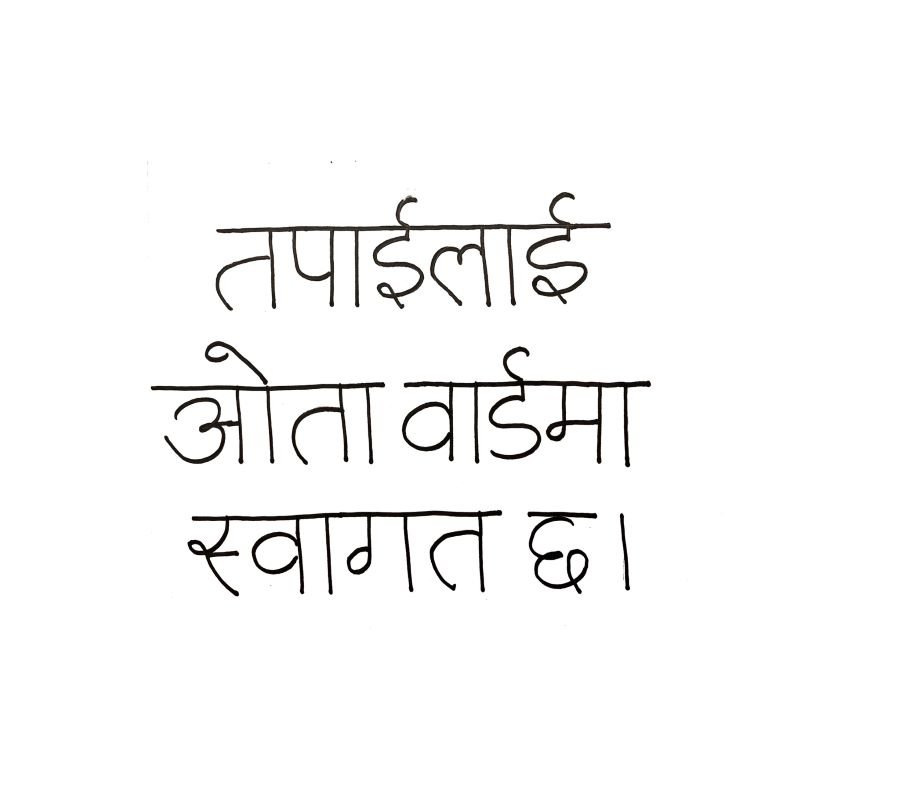 तपाईलाई
ओता वार्डमा
स्वागत छ।